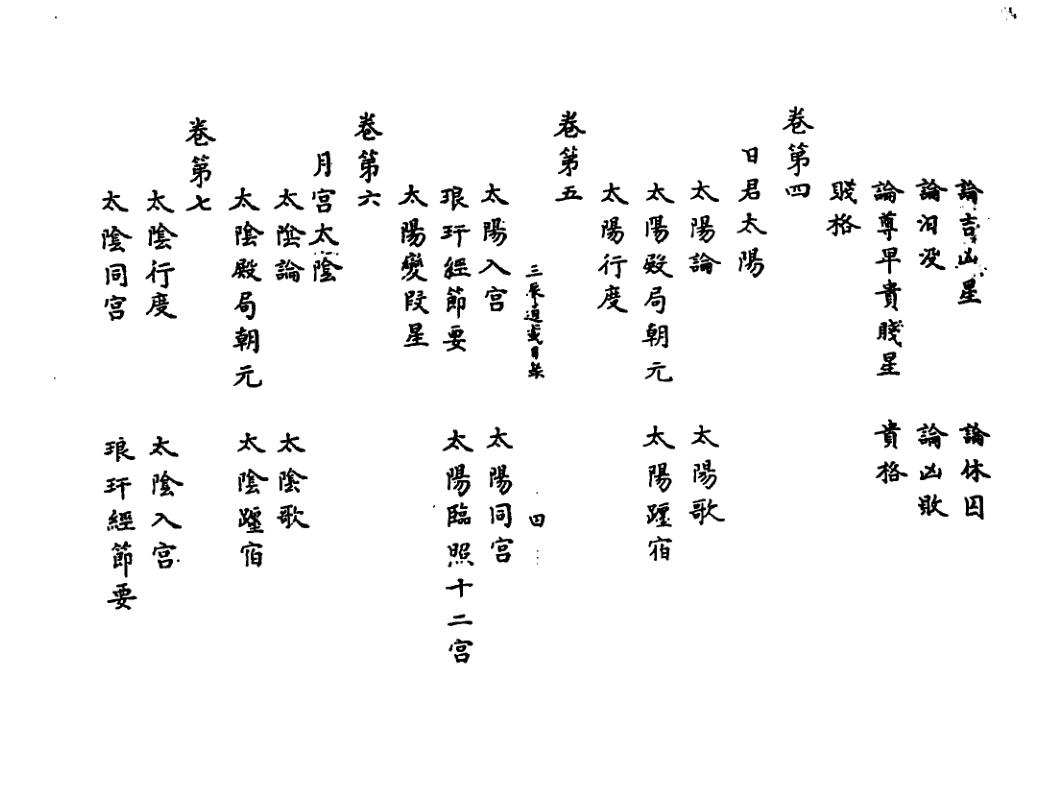 論吉凶星　論休囚
論汨没　論凶敗
論尊卑貴賤星　貴格
賤格
卷第四
日君太陽
太陽論　太陽歌
太陽殿局朝元　太陽躔宿
太陽行度
卷第五
三辰通載目錄　四
太陽入宮　太陽同宮
琅玕經節要　太陽臨照十二宮
太陽變段星
卷第六
月宮太陰
太陰論　太陰歌
太陰殿局朝元　太陰躔宿
卷第七
太陰行度　太陰入宮
太陰同宮　琅玕經節要